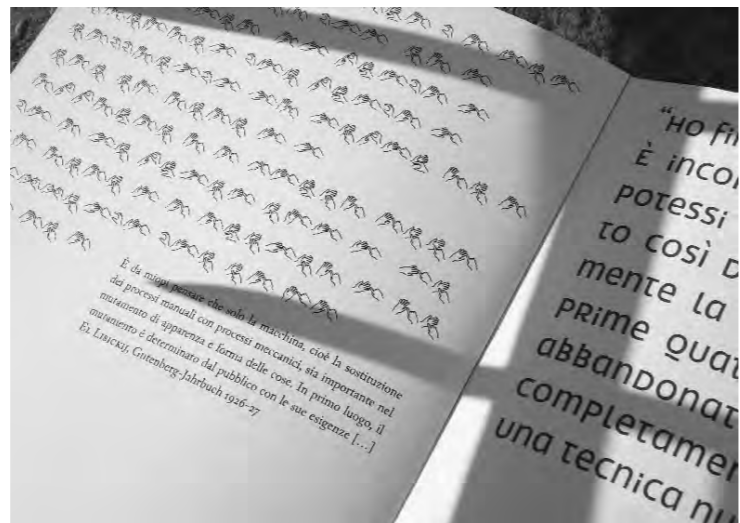 È da miopi pensare che solo la macchina, cioè la sostituzione
dei processi manuali con processi meccanici, sia importante nel
mutamento di apparenza e forma delle cose. In primo luogo, il
mutamento è determinato dal pubblico con le sue esigenze […]
El Lisickij, Gutenberg-Jahrbuch 1926-27
“Ho fi
È inco
potessi
to così D
mente la
prime quat
abbandonat
completamen
una tecnica nu